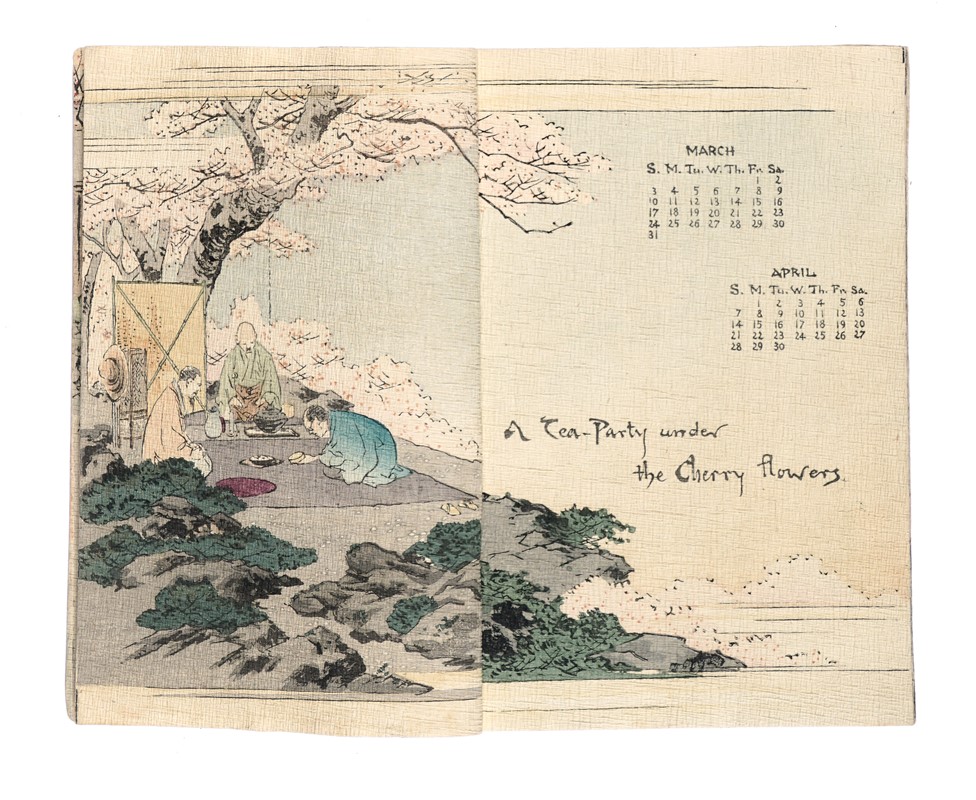 MARCH
S. M. Tu. W. Th. Fr. Sa.
1 2
3 4 5 6 7 8 9
10 11 12 13 14 15 16
17 18 19 20 21 22 23
24 25 26 27 28 29 30
31
APRIL
S. M. Tu. W. Th. Fr. Sa.
1 2 3 4 5 6
7 8 9 10 11 12 13
14 15 16 17 18 19 20
21 22 23 24 25 26 27
28 29 30
A Tea-Party under
the Cherry flowers.